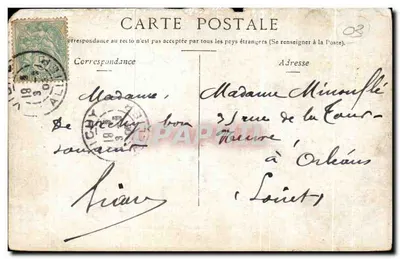 CARTE POSTALE
La correspondance au recto n'est pas acceptée par tous les pays étrangers (Se renseigner à la Poste).
Correspondance
Adresse
03
Madame,
De Vichy bon
souvenir
Madame Minouflé
35 rue de la Tour
Neuve
à Orléans
Loiret
VICHY
ALLIER